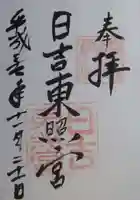 奉拝
日吉東照宮
平成
年十一月二十
日